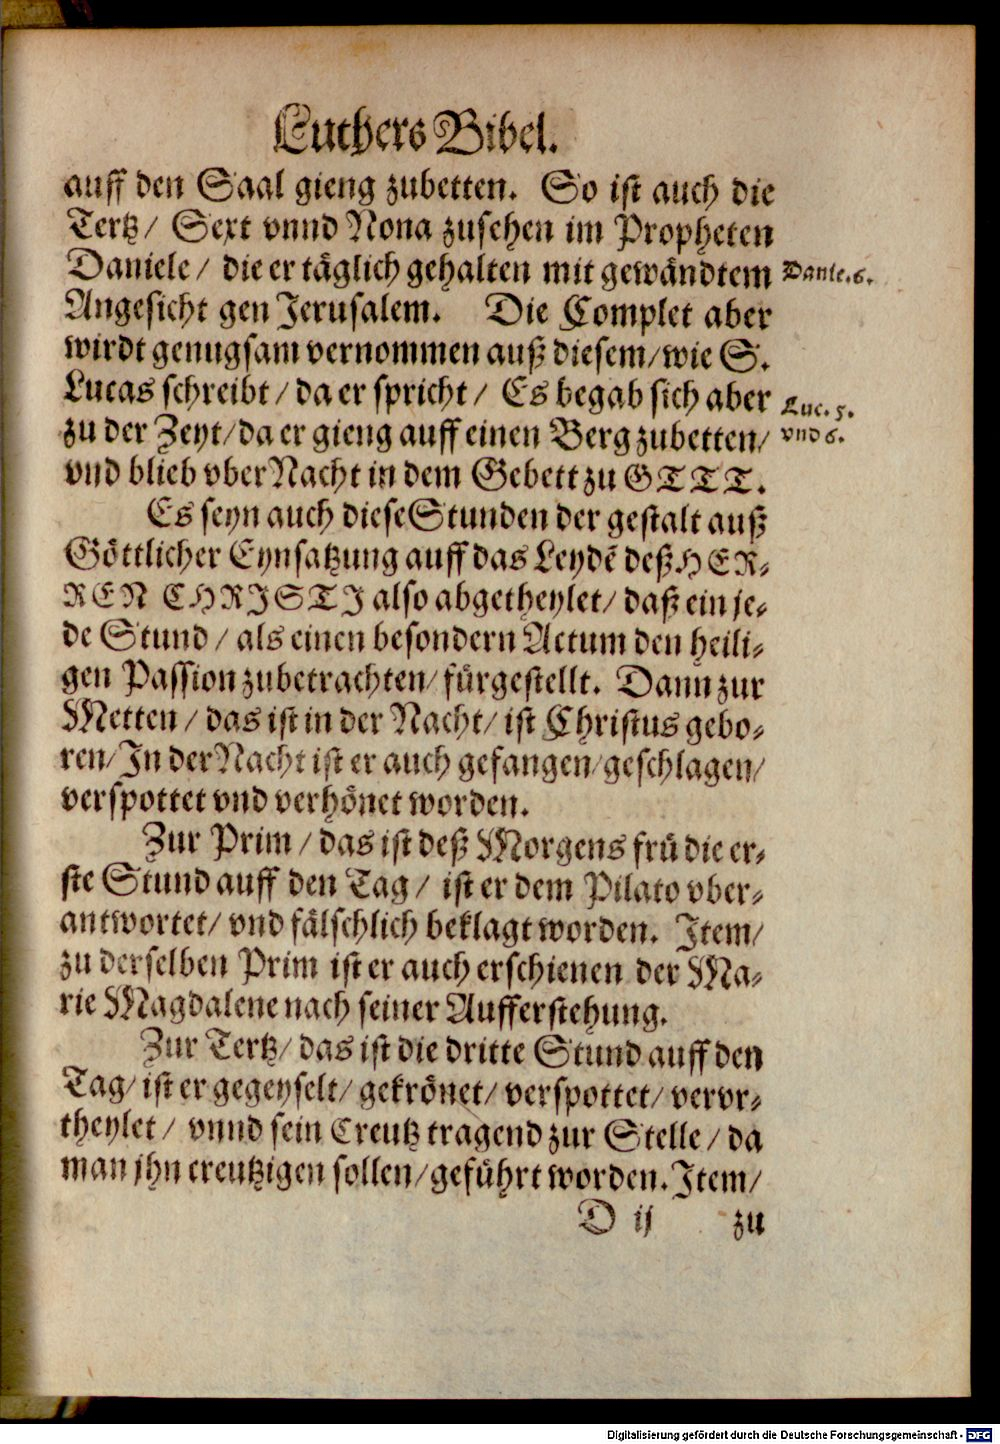 Luthers Bibel.
auff den Saal gieng zubetten. So ist auch die
Tertz/ Sext vnnd Nona zusehen im Propheten
Daniele/ die er täglich gehalten mit gewändtem
Danie.6.
Angesicht gen Jerusalem. Die Complet aber
wirdt genugsam vernommen auß diesem/wie S.
Lucas schreibt/ da er spricht/ Es begab sich aber
Luc. 5.
zu der Zeyt/da er gieng auff einen Berg zubetten/
vnd 6.
vnd blieb vber Nacht in dem Gebett zu GTTT.
Es seyn auch diese Stunden der gestalt auß
Göttlicher Eynsatzung auff das Leydẽ deß HER-
REN CHRISTI also abgetheylet/ daß ein je-
de Stund/ als einen besondern Actum den heili-
gen Passion zubetrachten/fürgestellt. Dann zur
Metten/ das ist in der Nacht/ ist Christus gebo-
ren/In der Nacht ist er auch gefangen/geschlagen/
verspottet vnd verhönet worden.
Zur Prim/ das ist deß Morgens frü die er-
ste Stund auff den Tag/ ist er dem Pilato vber-
antwortet/ vnd fälschlich beklagt worden. Item/
zu derselben Prim ist er auch erschienen der Ma-
rie Magdalene nach seiner Aufferstehung.
Zur Tertz/ das ist die dritte Stund auff den
Tag/ist er gegeyselt/ gekrönet/ verspottet/ vervr-
theylet/ vnnd sein Creutz tragend zur Stelle/ da
man jhn creutzigen sollen/geführt worden. Item/
D ij zu
Digitalisierung gefördert durch die Deutsche Forschungsgemeinschaft - DFG